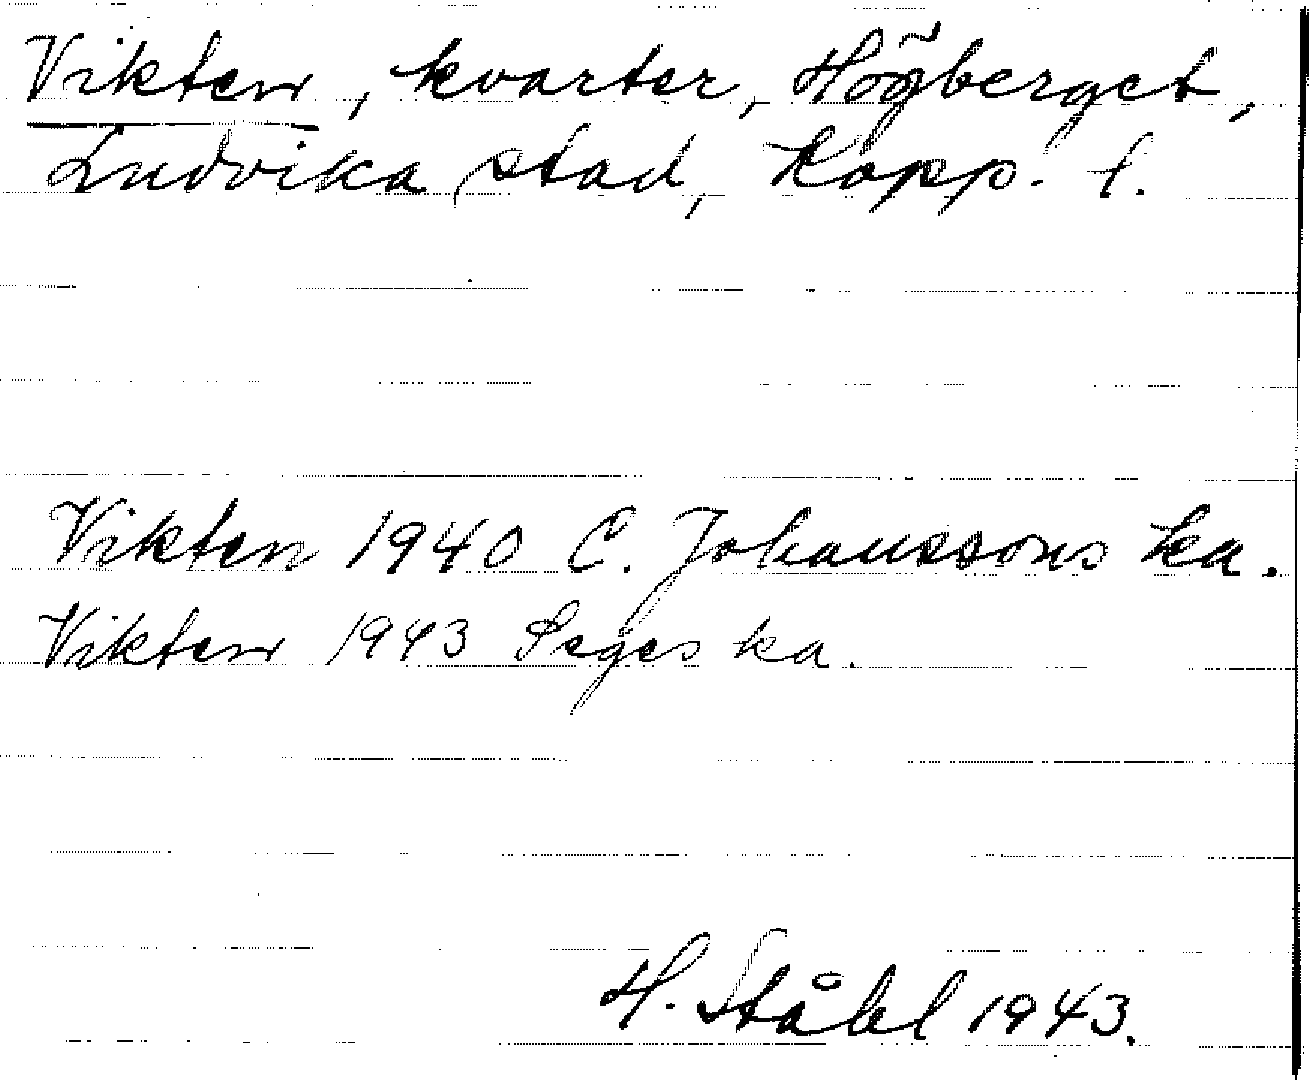 Vikten, kvarter, Högberget,
Ludvika stad, Kopp. l.
Vikten 1940 C. Johanssons ka.
Vikten 1943 Seges ka.
H. Ståhl 1943.